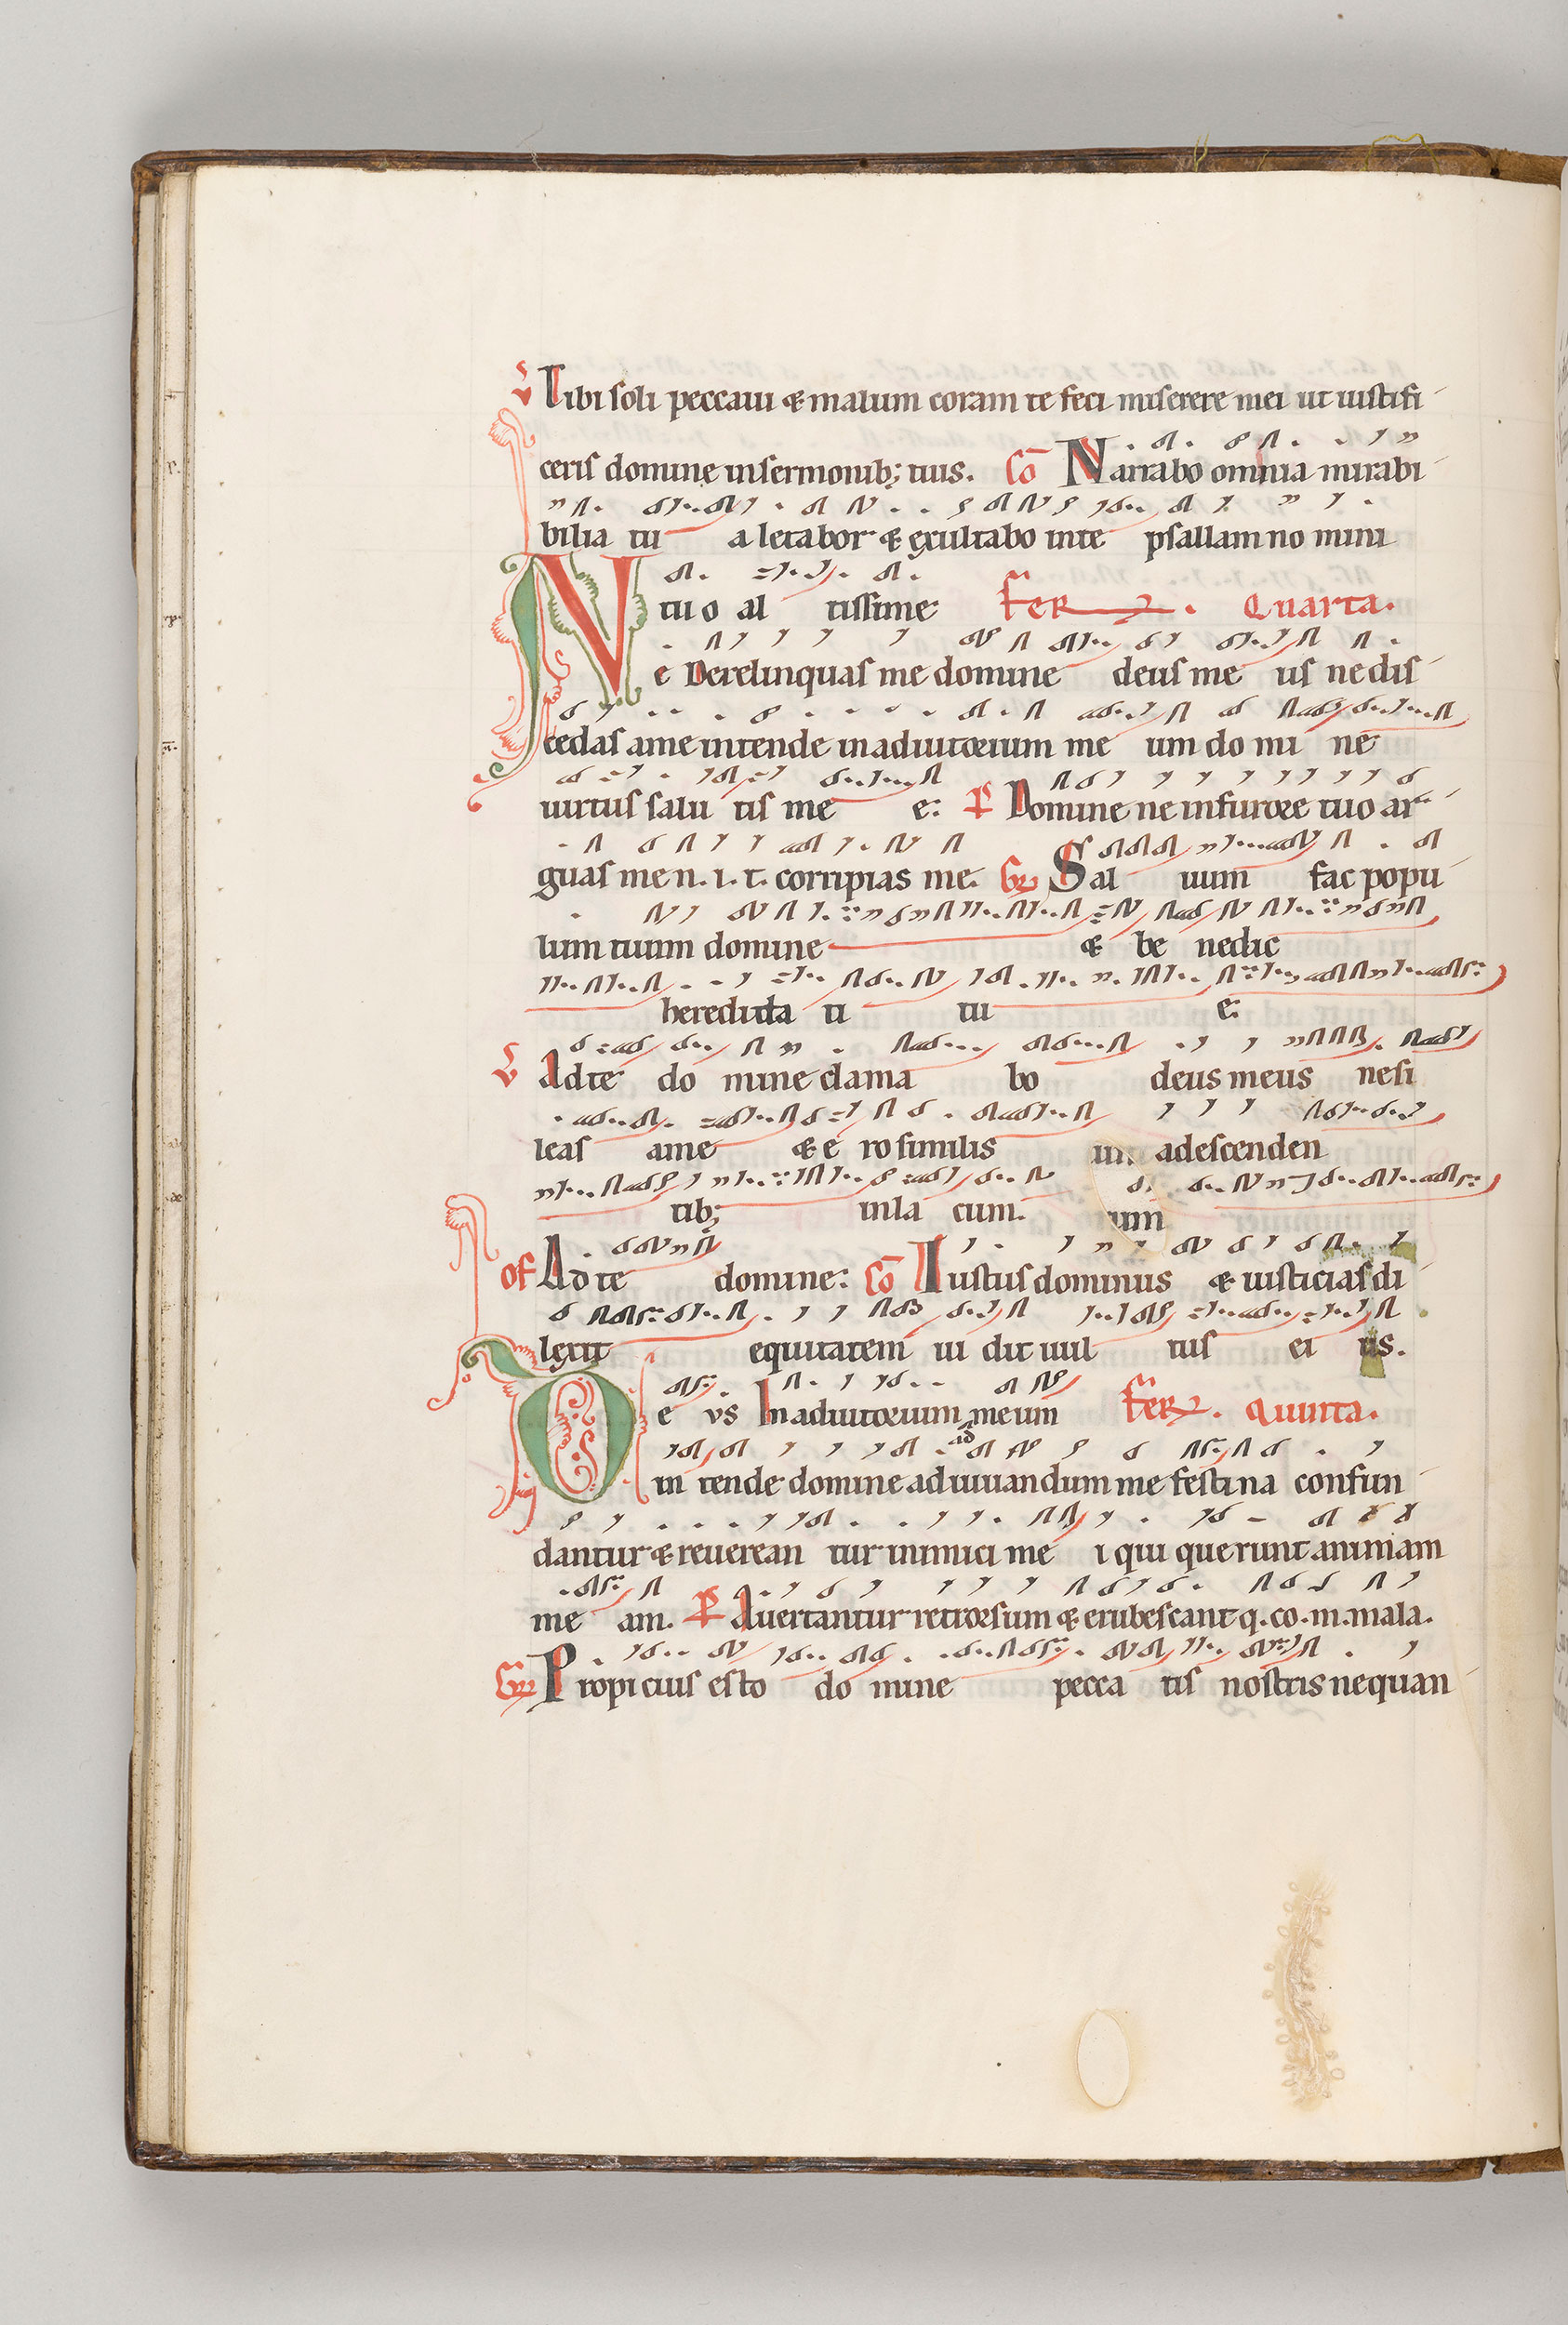 V Tibi soli peccaui & malum coram te feci miserere mei ut iustifi
ceris domine insermonib; tuis. Co Narrabo omnia mirabi
bilia tu a letabor & exultabo inte psallam no mini
tuo al tissime Fer . Quarta.
Ne Derelinquas me domine deus me us ne dis
cedas ame intende inadiutorium me um do mi ne
uirtus salu tis me e: P Domine ne infurore tuo ar
guas me n. i. t. corripias me. Gr Sal uum fac popu
lum tuum domine & be nedic
heredita ti tu e:
V Adte do mine clama bo deus meus nesi
leas ame & e ro similis adescenden
tib; inla cum.
Of Ad te domine: Co Iustus dominus & iusticias di
lexit equitatem ui dit uul tus ei us.
De us In adiutorium meum Fer . Quinta.
ad
in tende domine adiuuandum me festina confun
dantur & reuerean tur inimici me i qui querunt animam
me am. P Auertantur retrorsum & erubescant q. co. m. mala.
Gr Propicius esto do mine pecca tis nostris nequan